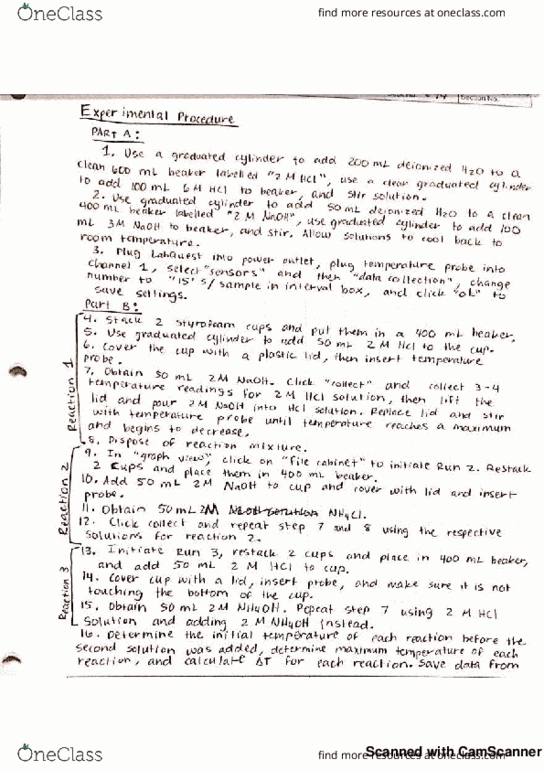 OneClass
find more resources at oneclass.com
Section No.
Experimental Procedure
PART A:
1. Use a graduated cylinder to add 200 mL deionized H2O to a
clean 600 mL beaker labelled "2 M HCl", use a clear graduated cylinder
to add 100 mL 6 M HCl to beaker, and stir solution.
2. Use graduated cylinder to add 50 mL deionized H2O to a clean
400 mL beaker labelled "2 M NaOH", use graduated cylinder to add 100
mL 3M NaOH to beaker, and stir. Allow solutions to cool back to
room temperature.
3. Plug LabQuest into power outlet, plug temperature probe into
channel 1, select "sensors" and then "data collection", change
number to "15" s/sample in interval box, and click "ok" to
save settings.
Part B:
Reaction 1
4. Stack 2 styrofoam cups and put them in a 400 mL beaker.
5. Use graduated cylinder to add 50 mL 2 M HCl to the cup.
6. Cover the cup with a plastic lid, then insert temperature
probe.
7. Obtain 50 mL 2M NaOH. Click "collect" and collect 3-4
temperature readings for 2 M HCl solution, then lift the
lid and pour 2M NaOH into HCl solution. Replace lid and stir
with temperature probe until temperature reaches a maximum
and begins to decrease.
8. Dispose of reaction mixture.
Reaction 2
9. In "graph view" click on "file cabinet" to initiate Run 2. Restack
2 cups and place them in 400 mL beaker.
10. Add 50 mL 2M NaOH to cup and cover with lid and insert
probe.
11. Obtain 50 mL 2M NaOH solution NH4Cl.
12. Click collect and repeat step 7 and 8 using the respective
solutions for reaction 2.
Reaction 3
13. Initiate Run 3, restack 2 cups and place in 400 mL beaker,
and add 50 mL 2 M HCl to cup.
14. Cover cup with a lid, insert probe, and make sure it is not
touching the bottom of the cup.
15. Obtain 50 mL 2M NH4OH. Repeat step 7 using 2 M HCl
solution and adding 2 M NH4OH instead.
16. Determine the initial temperature of each reaction before the
second solution was added, determine maximum temperature of each
reaction, and calculate ΔT for each reaction. Save data from
Scanned with CamScanner
OneClass
find more resources at oneclass.com